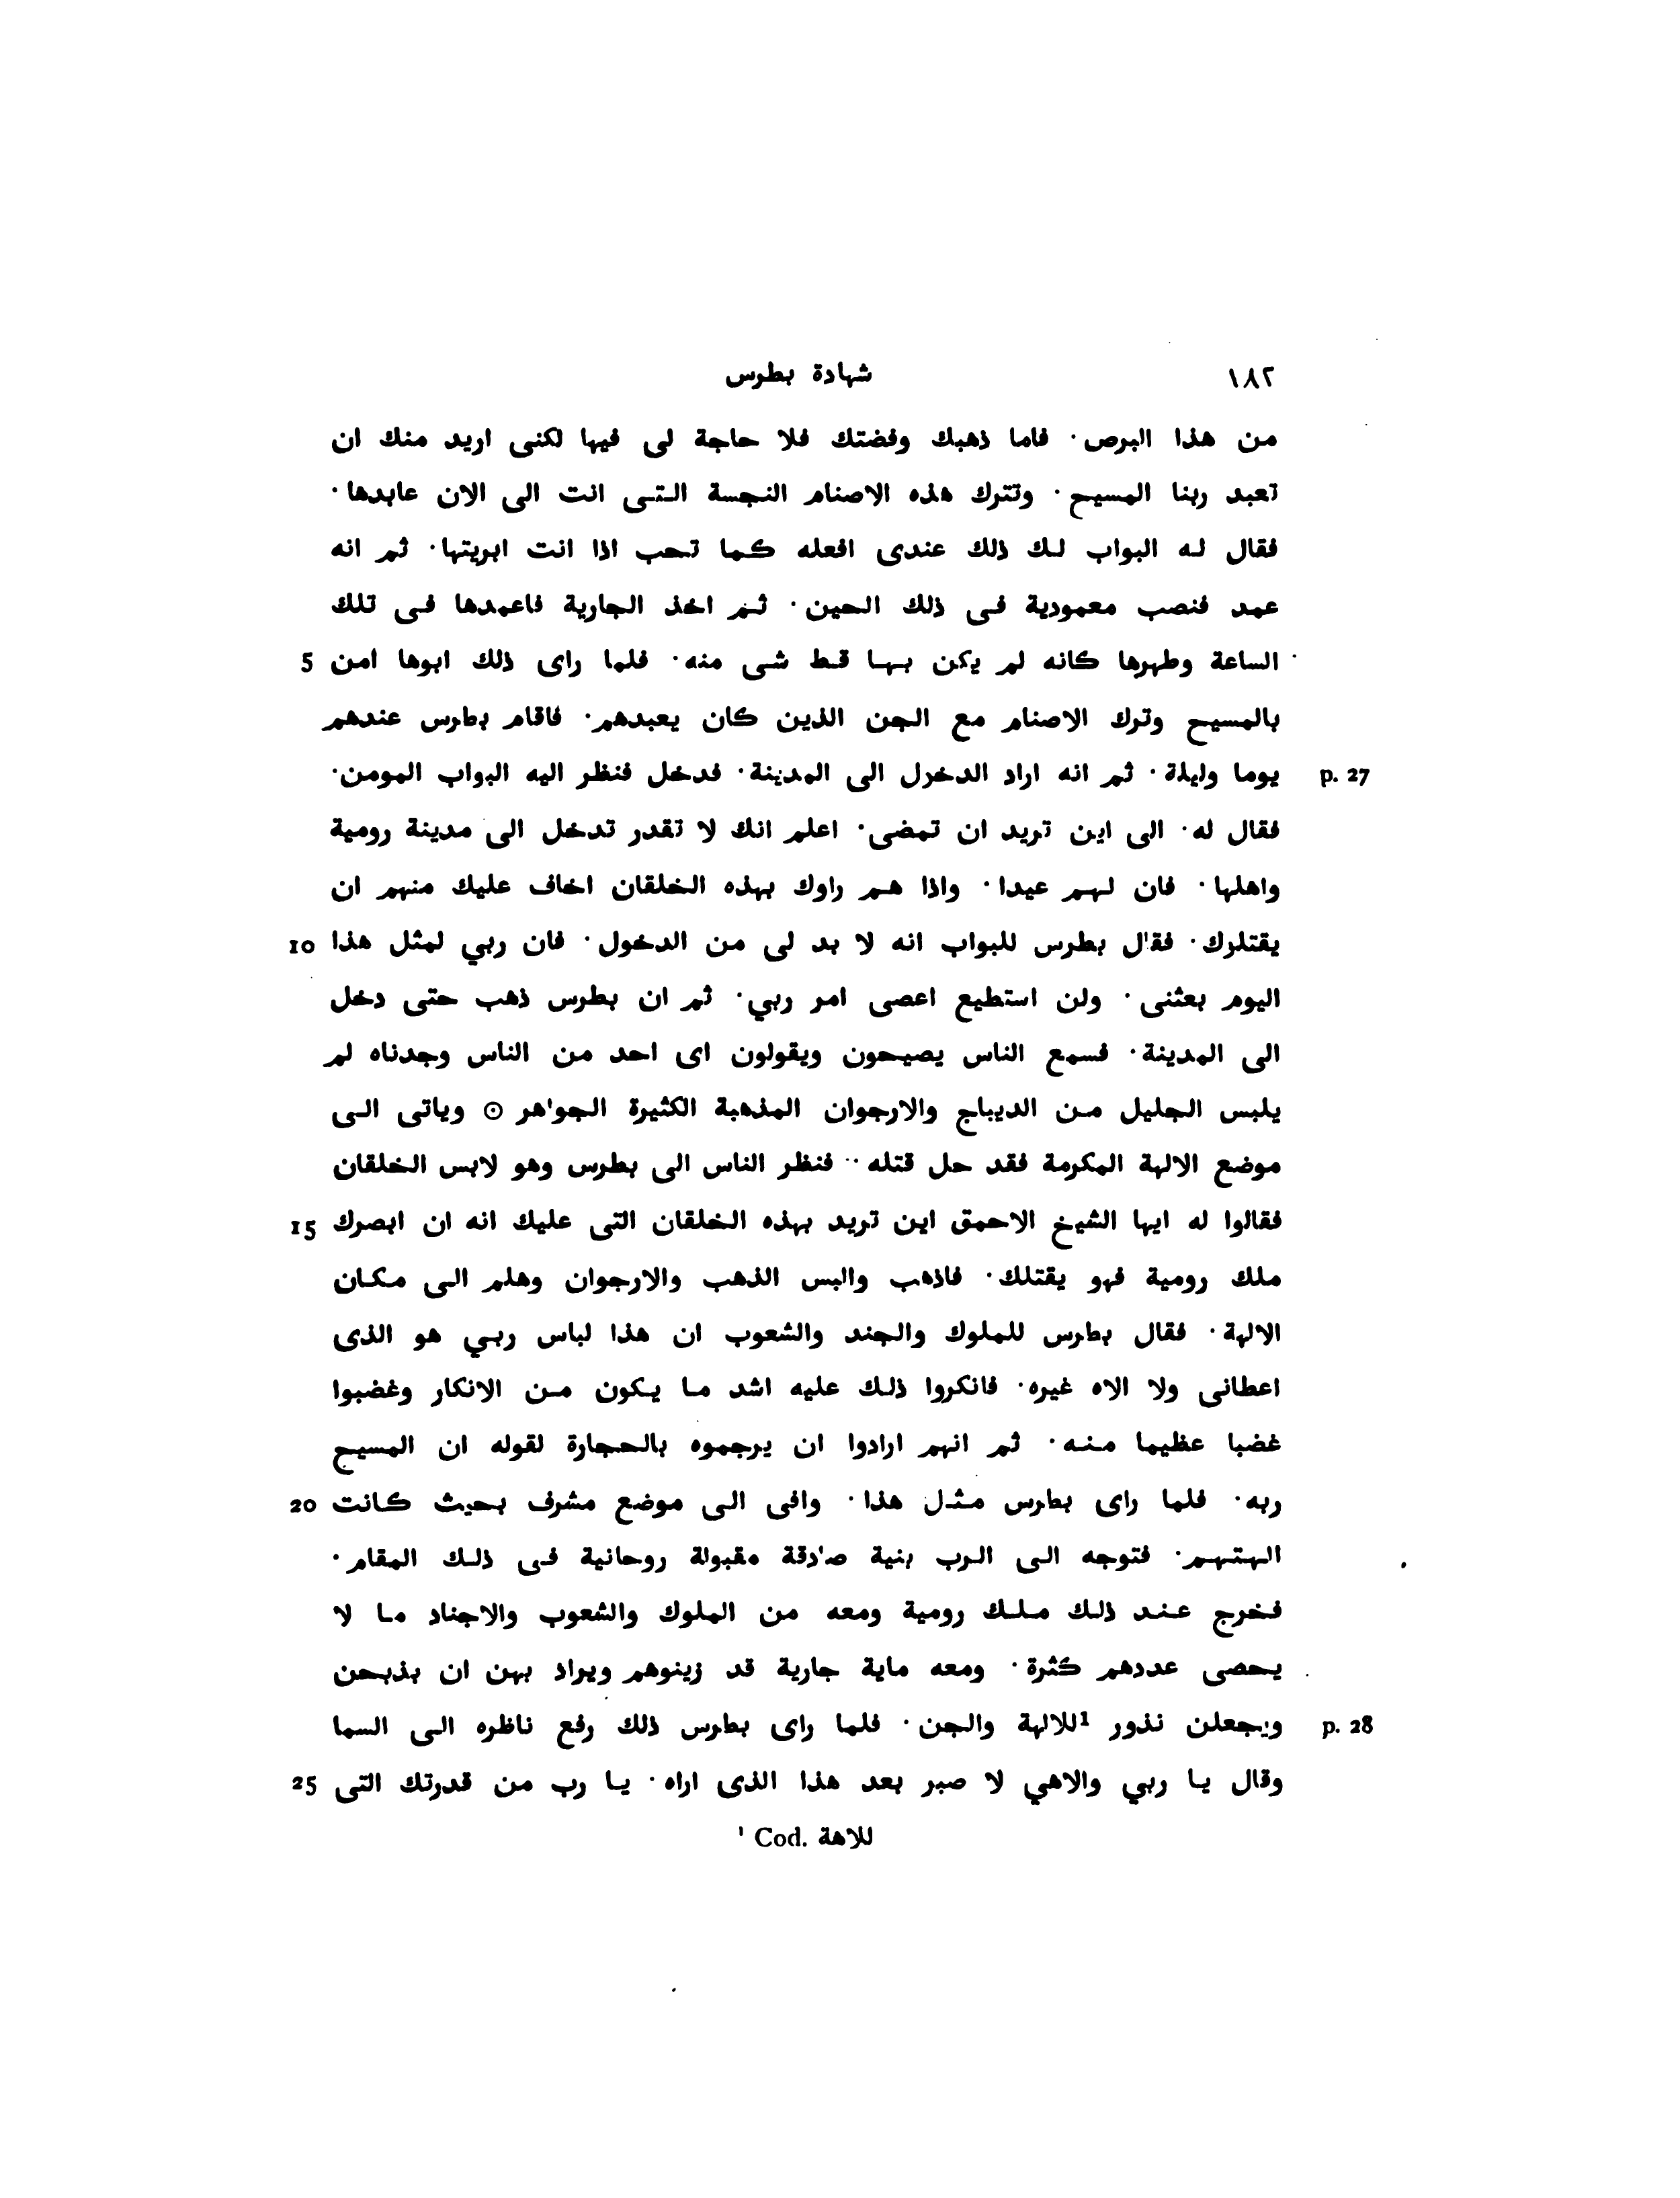 ١٨٢ شهادة بطرس
من هذا البرص٠ فاما ذهبك وفضتك فلا حاجة لى فيها لكنى اريد منك ان
تعبد ربنا المسيح٠ وتترك هذه الاصنام النجسة التى انت الى الان عابدها٠
فقال له البواب لك ذلك عندى افعله كما تحب اذا انت ابريتها٠ ثم انه
عمد فنصب معمودية فى ذلك الحين٠ ثم اخذ الجارية فاعمدها فى تلك
الساعة وطهرها كانه لم يكن بها قط شى منه٠ فلما راى ذلك ابوها امن 5
بالمسيح وترك الاصنام مع الجن الذين كان يعبدهم٠ فاقام بطرس عندهم
p. 27 يوما وليلة٠ ثم انه اراد الدخول الى المدينة٠ فدخل فنظر اليه البواب المومن٠
فقال له٠ الى اين تريد ان تمضى٠ اعلم انك لا تقدر تدخل الى مدينة رومية
واهلها٠ فان لهم عيدا٠ واذا هم راوك بهذه الخلقان اخاف عليك منهم ان
يقتلوك٠ فقال بطرس للبواب انه لا بد لى من الدخول٠ فان ربي لمثل هذا 10
اليوم بعثنى٠ ولن استطيع اعصى امر ربي٠ ثم ان بطرس ذهب حتى دخل
الى المدينة٠ فسمع الناس يصيحون ويقولون اى احد من الناس وجدناه لم
يلبس الجليل من الديباج والارجوان المذهبة الكثيرة الجواهر ⊙ وياتى الى
موضع الالهة المكرمة فقد حل قتله٠٠ فنظر الناس الى بطرس وهو لابس الخلقان
فقالوا له ايها الشيخ الاحمق اين تريد بهذه الخلقان التى عليك انه ان ابصرك 15
ملك رومية فهو يقتلك٠ فاذهب والبس الذهب والارجوان وهلم الى مكان
الالهة٠ فقال بطرس للملوك والجند والشعوب ان هذا لباس ربي هو الذى
اعطانى ولا الاه غيره٠ فانكروا ذلك عليه اشد ما يكون من الانكار وغضبوا
غضبا عظيما منه٠ ثم انهم ارادوا ان يرجموه بالحجارة لقوله ان المسيح
ربه٠ فلما راى بطرس مثل هذا٠ وافى الى موضع مشرف بحيث كانت 20
الهتهم٠ فتوجه الى الرب بنية صادقة مقبولة روحانية فى ذلك المقام٠
فخرج عند ذلك ملك رومية ومعه من الملوك والشعوب والاجناد ما لا
يحصى عددهم كثرة٠ ومعه ماية جارية قد زينوهم ويراد بهن ان يذبحن
p. 28 ويجعلن نذور ¹للالهة والجن٠ فلما راى بطرس ذلك رفع ناظره الى السما
وقال يا ربي والاهي لا صبر بعد هذا الذى اراه٠ يا رب من قدرتك التى 25
¹ Cod. للاهة